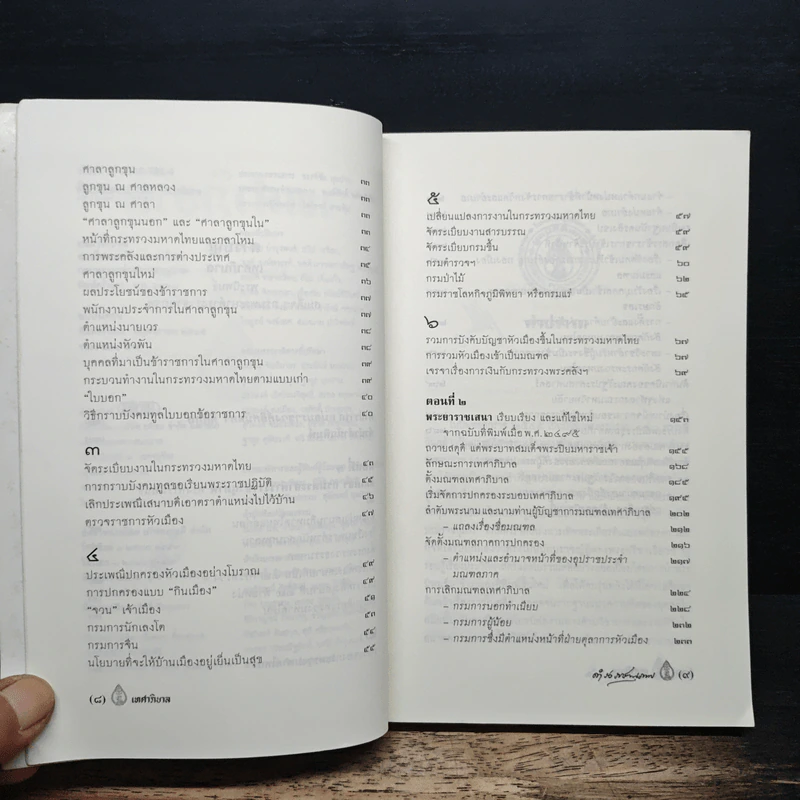 ศาลาลูกขุน ๓๓
ลูกขุน ณ ศาลหลวง ๓๓
ลูกขุน ณ ศาลา ๓๓
“ศาลาลูกขุนนอก” และ “ศาลาลูกขุนใน” ๓๓
หน้าที่กระทรวงมหาดไทยและกลาโหม ๓๔
การพระคลังและการต่างประเทศ ๓๕
ศาลาลูกขุนใหม่ ๓๖
ผลประโยชน์ของข้าราชการ ๓๗
พนักงานประจำการในศาลาลูกขุน ๓๗
ตำแหน่งนายเวร ๓๘
ตำแหน่งหัวพัน ๓๘
บุคคลที่มาเป็นข้าราชการในศาลาลูกขุน ๓๙
กระบวนทำงานในกระทรวงมหาดไทยตามแบบเก่า ๓๙
“ใบบอก” ๔๐
วิธีกราบบังคมทูลใบบอกข้อราชการ ๔๐
๓
จัดระเบียบงานในกระทรวงมหาดไทย ๔๓
การกราบบังคมทูลขอเรียนพระราชปฏิบัติ ๔๕
เลิกประเพณีเสนาบดีเอาตราตำแหน่งไปไว้บ้าน ๔๖
ตรวจราชการหัวเมือง ๔๗
๔
ประเพณีปกครองหัวเมืองอย่างโบราณ ๔๙
การปกครองแบบ “กินเมือง” ๔๙
“จวน” เจ้าเมือง ๕๑
กรมการนักเลงโต ๕๓
กรมการจีน ๕๔
นโยบายที่จะให้บ้านเมืองอยู่เย็นเป็นสุข ๕๕
(๘) เทศาภิบาล
๕
เปลี่ยนแปลงการงานในกระทรวงมหาดไทย ๕๗
จัดระเบียบงานสารบรรณ ๕๙
จัดระเบียบกรมขึ้น ๕๙
กรมตำรวจฯ ๖๐
กรมป่าไม้ ๖๒
กรมราชโลหกิจภูมิพิทยา หรือกรมแร่ ๖๕
๖
รวมการบังคับบัญชาหัวเมืองขึ้นในกระทรวงมหาดไทย ๖๗
การรวมหัวเมืองเข้าเป็นมณฑล ๖๗
เจรจาเรื่องการเงินกับกระทรวงพระคลังฯ ๖๙
ตอนที่ ๒
พระยาราชเสนา เรียบเรียง และแก้ไขใหม่ ๑๕๓
จากฉบับที่พิมพ์เมื่อ พ.ศ. ๒๔๙๕
ถวายสดุดี แด่พระบาทสมเด็จพระปิยมหาราชเจ้า ๑๕๕
ลักษณะการเทศาภิบาล ๑๖๘
ตั้งมณฑลเทศาภิบาล ๑๘๕
เริ่มจัดการปกครองระบอบเทศาภิบาล ๑๙๕
ลำดับพระนามและนามท่านผู้บัญชาการมณฑลเทศาภิบาล ๒๐๒
– แถลงเรื่องชื่อมณฑล ๒๑๒
จัดตั้งมณฑลภาคการปกครอง ๒๑๖
– ตำแหน่งและอำนาจหน้าที่ของอุปราชประจำ ๒๑๗
มณฑลภาค
การเลิกมณฑลเทศาภิบาล ๒๒๔
– กรมการนอกทำเนียบ ๒๒๘
– กรมการผู้น้อย ๒๓๒
– กรมการซึ่งมีตำแหน่งหน้าที่ฝ่ายตุลาการหัวเมือง ๒๓๓
(๙)